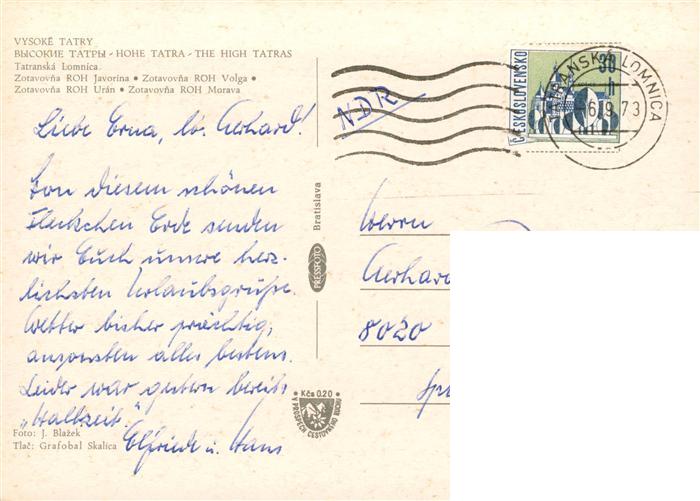 VYSOKÉ TATRY
ВЫСОКИЕ ТАТРЫ - HOHE TATRA - THE HIGH TATRAS
Tatranská Lomnica
Zotavovňa ROH Javorina • Zotavovňa ROH Volga •
Zotavovňa ROH Urán • Zotavovňa ROH Morava
Liebe Erna, lb. Gerhard!
Von diesem schönen
Fleckchen Erde senden
wir Euch unsere herz-
lichsten Urlaubsgrüße.
Wetter bisher prächtig,
ansonsten alles bestens.
Leider war gestern bereits
"Halbzeit".
Elfriede u. Hans
Foto: J. Blažek
Tlač: Grafobal Skalica
Bratislava
PRESSFOTO
Kčs 0.20
V PROSPECH CESTOVNÉHO RUCHU
NDR
ČESKOSLOVENSKO
30
h
TATRANSKÁ LOMNICA
6.9.73
Herrn
Gerhard
8020